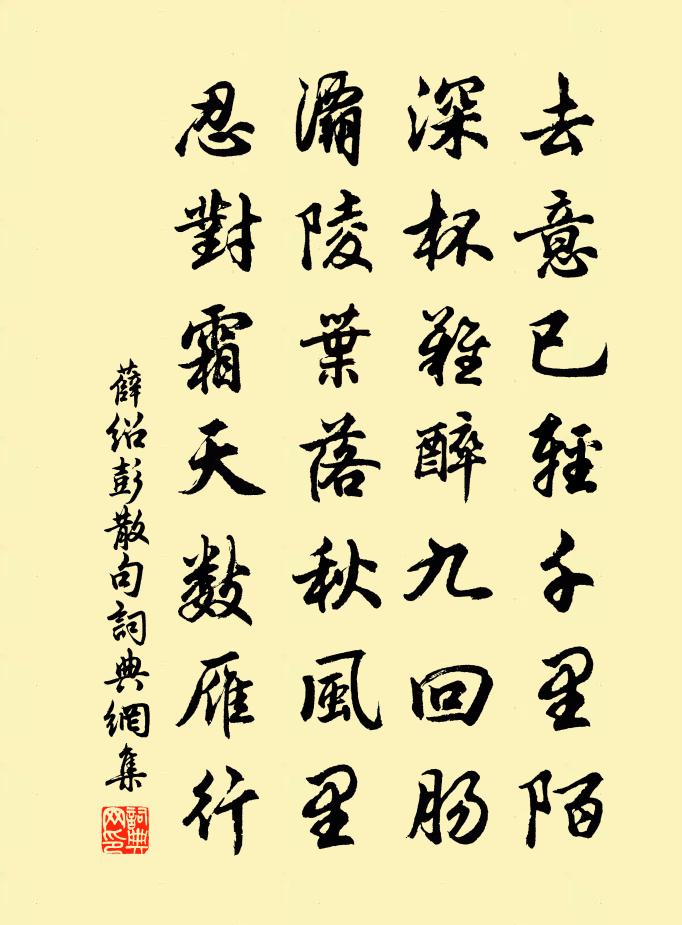 去意已輕千里陌
深杯難醉九回腸
灞陵葉落秋風里
忍對霜天數雁行
薛绍彭散句詞典網集
詞典网印